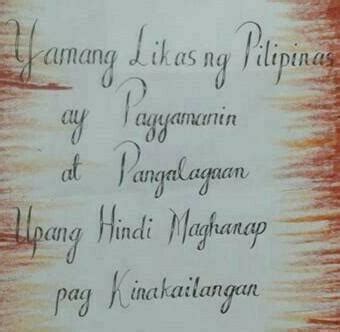 Yamang Likas ng Pilipinas
ay Pagyamanin
at Pangalagaan
Upang Hindi Maghanap
pag Kinakailangan